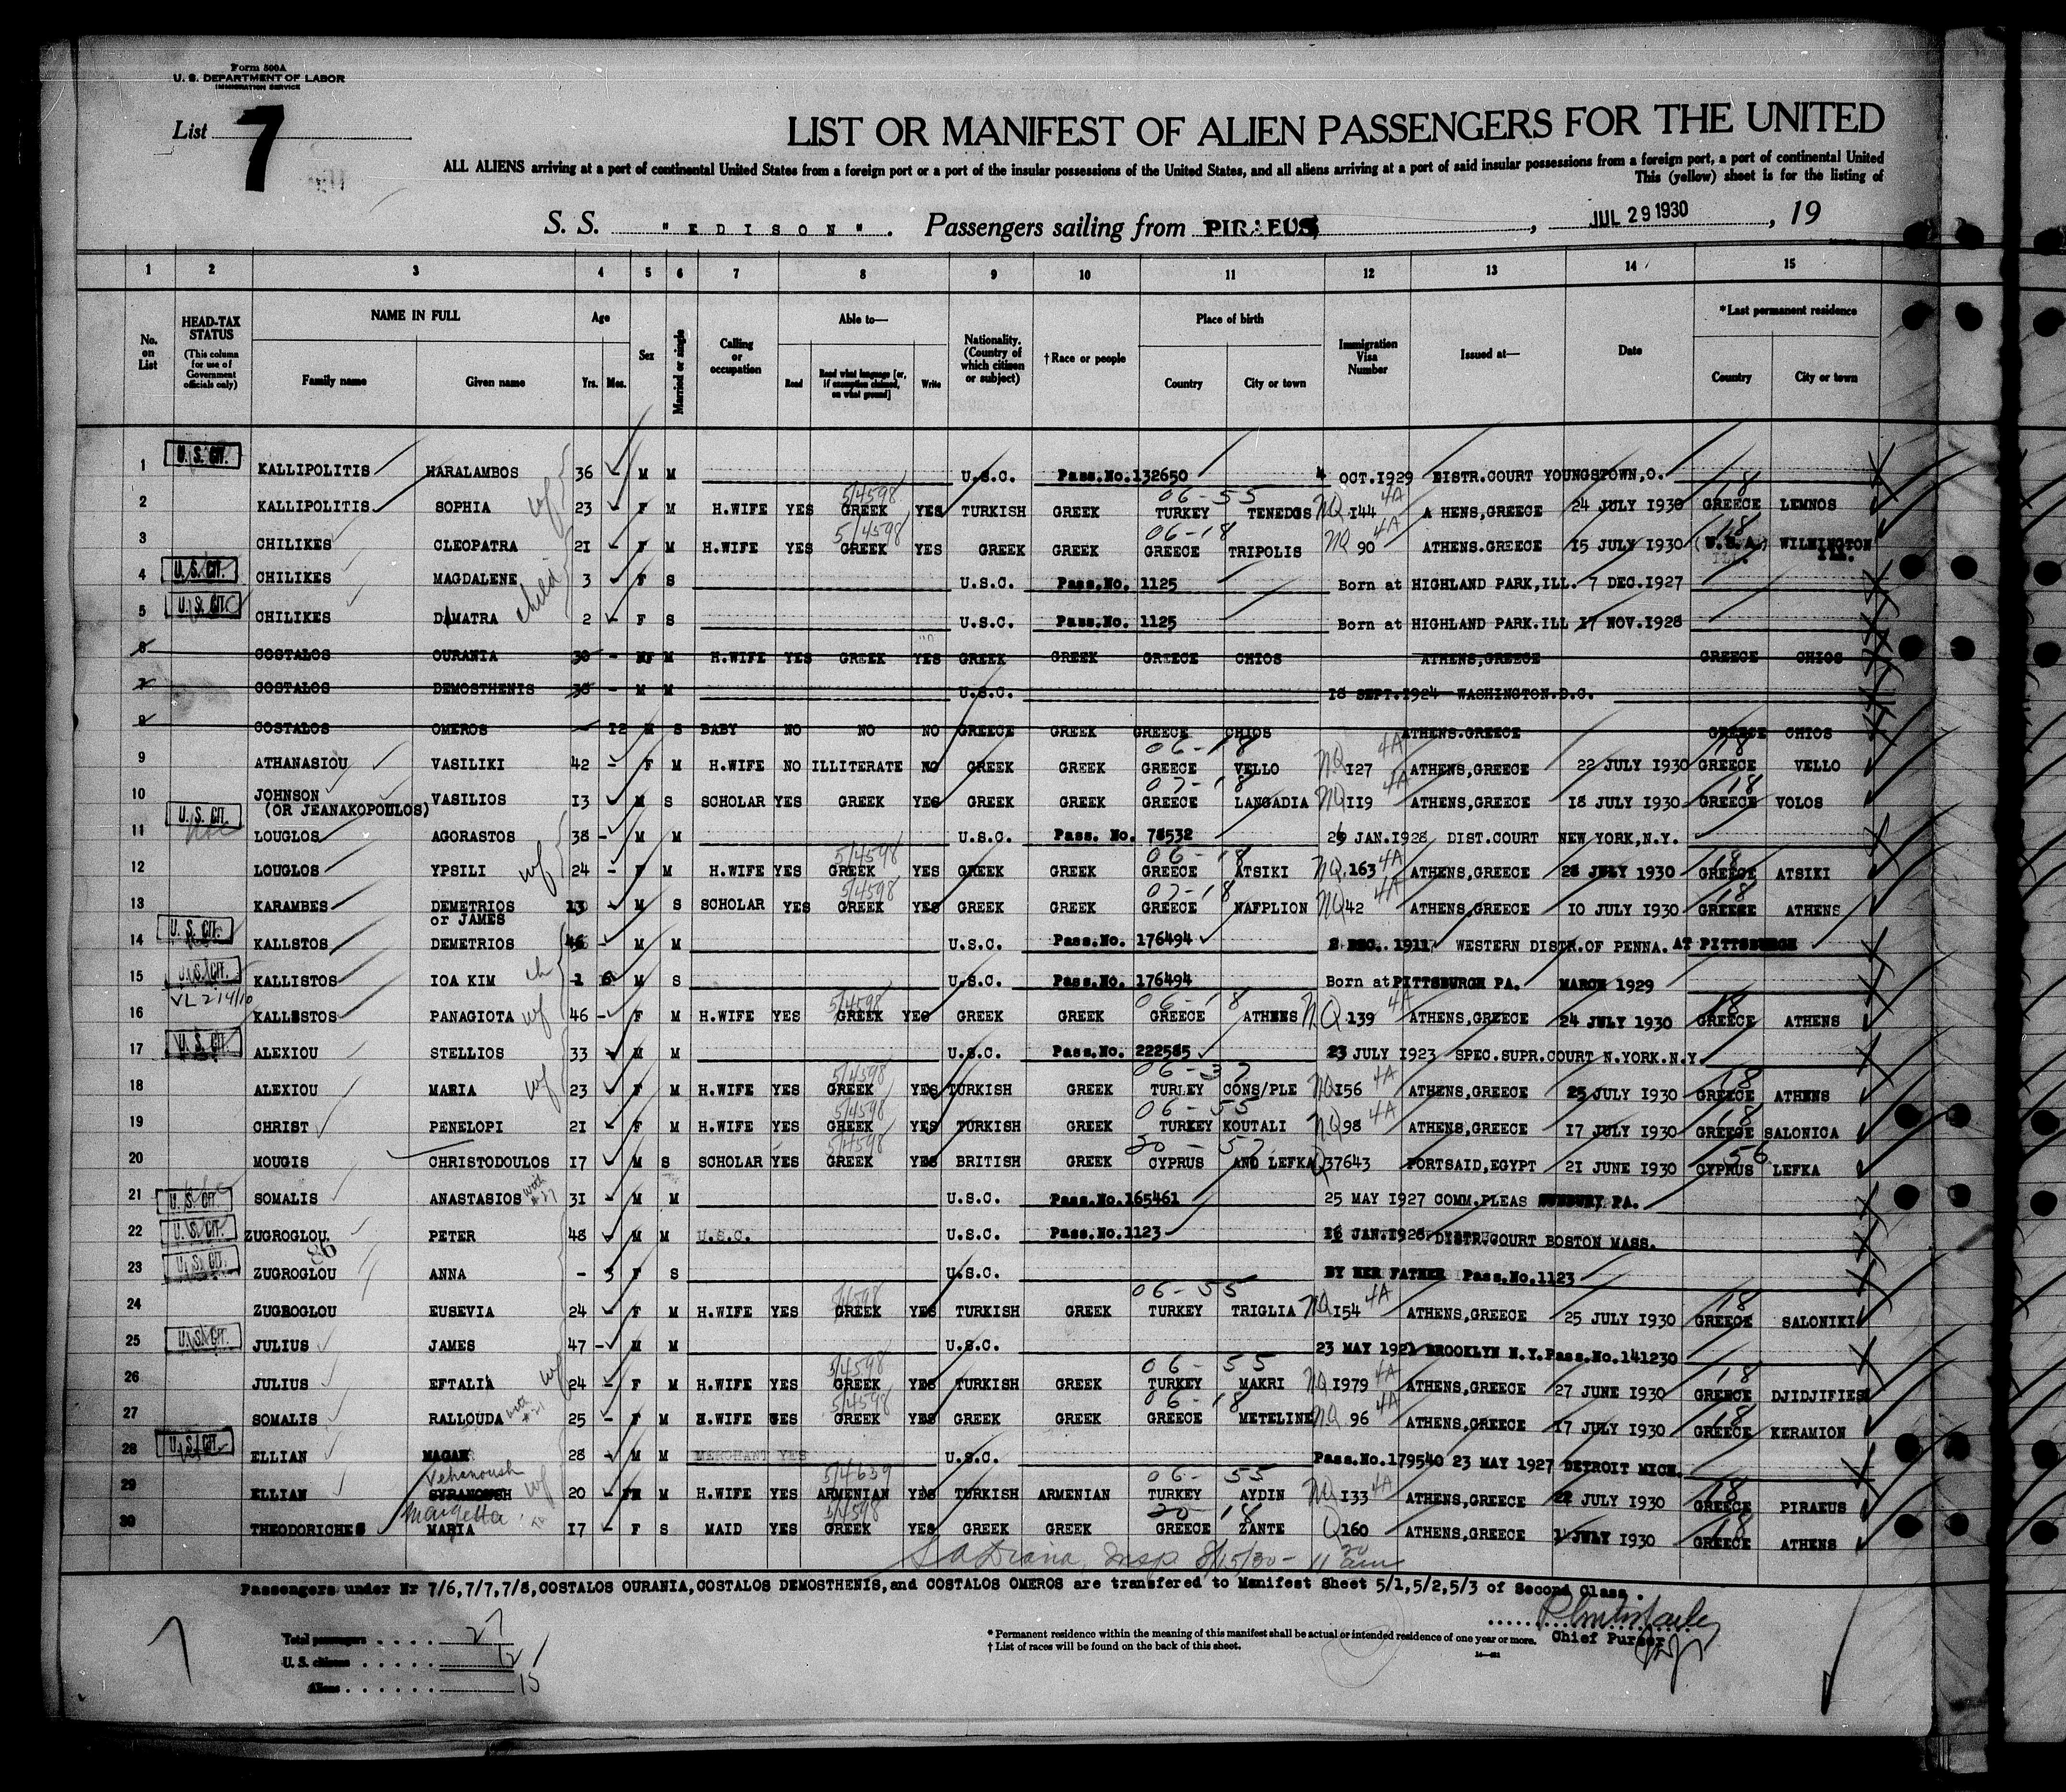 Form 500A
U. S. DEPARTMENT OF LABOR
IMMIGRATION SERVICE
List 7
LIST OR MANIFEST OF ALIEN PASSENGERS FOR THE UNITED
ALL ALIENS arriving at a port of continental United States from a foreign port or a port of the insular possessions of the United States, and all aliens arriving at a port of said insular possessions from a foreign port, a port of continental United
This (yellow) sheet is for the listing of
S. S. "EDISON". Passengers sailing from PIRAEUS, JUL 29 1930, 19
1 2 3 4 5 6 7 8 9 10 11 12 13 14 15
No. on List HEAD-TAX STATUS (This column for use of Government officials only) NAME IN FULL Family name Given name Age Yrs. Mos. Sex Married or single Calling or occupation Able to— Read Read what language [or, if exemption claimed, on what ground] Write Nationality. (Country of which citizen or subject) †Race or people Place of birth Country City or town Immigration Visa Number Issued at— Date *Last permanent residence Country City or town
1 U. S. CIT. KALLIPOLITIS HARALAMBOS 36 M M U.S.C. Pass.No.132650 4 OCT.1929 DISTR.COURT YOUNGSTOWN,O.
2 KALLIPOLITIS SOPHIA wf 23 - F M H.WIFE YES 5/4598 GREEK YES TURKISH GREEK 06-55 TURKEY TENEDOS NQ 144 4A A HENS,GREECE 24 JULY 1930 18 GREECE LEMNOS
3 CHILIKES CLEOPATRA 21 - F M H.WIFE YES 5/4598 GREEK YES GREEK GREEK 06-18 GREECE TRIPOLIS NQ 90 4A ATHENS.GREECE 15 JULY 1930 18 (U.S.A.) WILMINGTON ILL.
4 U. S. CIT. CHILIKES MAGDALENE child 3 F S U.S.C. Pass.No. 1125 Born at HIGHLAND PARK,ILL. 7 DEC.1927
5 U. S. CIT. CHILIKES DAMATRA 2 - F S U.S.C. Pass.No. 1125 Born at HIGHLAND PARK.ILL 17 NOV.1928
6 COSTALOS OURANIA 30 - F M H.WIFE YES GREEK YES GREEK GREEK GREECE CHIOS ATHENS,GREECE GREECE CHIOS
7 COSTALOS DEMOSTHENIS 38 - M M U.S.C. 18 SEPT.1924 WASHINGTON.D.C.
8 COSTALOS OMEROS - 12 M S BABY NO NO NO GREECE GREEK GREECE CHIOS ATHENS.GREECE GREECE CHIOS
9 ATHANASIOU VASILIKI 42 - F M H.WIFE NO ILLITERATE NO GREEK GREEK 06-18 GREECE VELLO NQ 127 4A ATHENS,GREECE 22 JULY 1930 18 GREECE VELLO
10 JOHNSON (OR JEANAKOPOULOS) VASILIOS 13 M S SCHOLAR YES GREEK YES GREEK GREEK 07-18 GREECE LANGADIA NQ 119 4A ATHENS,GREECE 18 JULY 1930 18 GREECE VOLOS
11 U. S. CIT. LOUGLOS AGORASTOS 38 - M M U.S.C. Pass. No. 78532 JAN.1928 DIST.COURT NEW YORK,N.Y.
12 LOUGLOS YPSILI wf 24 - F M H.WIFE YES 5/4598 GREEK YES GREEK GREEK 06-18 GREECE ATSIKI NQ 163 4A ATHENS,GREECE 28 JULY 1930 18 GREECE ATSIKI
13 KARAMBES DEMETRIOS or JAMES 13 M S SCHOLAR YES 5/4598 GREEK YES GREEK GREEK 07-18 GREECE NAFPLION NQ 42 4A ATHENS,GREECE 10 JULY 1930 18 GREECE ATHENS
14 U. S. CIT. KALLSTOS DEMETRIOS 46 - M M U.S.C. Pass.No. 176494 DEC. 1911 WESTERN DISTR.OF PENNA. AT PITTSBURGH
15 U. S. CIT. KALLISTOS IOA KIM ch 1 6 M S U.S.C. Pass.No. 176494 Born at PITTSBURGH PA. MARCH 1929
16 KALLISTOS PANAGIOTA wf 46 - F M H.WIFE YES 5/4598 GREEK YES GREEK GREEK 06-18 GREECE ATHENS NQ 139 4A ATHENS,GREECE 24 JULY 1930 18 GREECE ATHENS
17 U. S. CIT. ALEXIOU STELLIOS 33 M M U.S.C. Pass.No. 222585 23 JULY 1923 SPEC.SUPR.COURT N.YORK.N.Y.
18 ALEXIOU MARIA wf 23 F M H.WIFE YES 5/4598 GREEK YES TURKISH GREEK 06-37 TURLEY CONS/PLE NQ 156 4A ATHENS,GREECE 25 JULY 1930 18 GREECE ATHENS
19 CHRIST PENELOPI 21 - F M H.WIFE YES 5/4598 GREEK YES TURKISH GREEK 06-55 TURKEY KOUTALI NQ 98 4A ATHENS,GREECE 17 JULY 1930 18 GREECE SALONICA
20 MOUGIS CHRISTODOULOS 17 M S SCHOLAR YES 5/4598 GREEK YES BRITISH GREEK 20-57 CYPRUS AND LEFKA Q 37643 PORTSAID,EGYPT 21 JUNE 1930 56 CYPRUS LEFKA
21 U. S. CIT SOMALIS ANASTASIOS with #27 31 M M U.S.C. Pass.No.165461 25 MAY 1927 COMM.PLEAS SUNBURY PA.
22 U. S. CIT. ZUGROGLOU PETER 48 M M U.S.C. U.S.C. Pass.No.1123 16 JAN.1928 DISTR.COURT BOSTON MASS.
23 U. S. CIT. ZUGROGLOU ANNA - 3 F S U.S.C. BY HER FATHER Pass.No.1123
24 ZUGROGLOU EUSEVIA 24 F M H.WIFE YES 5/4598 GREEK YES TURKISH GREEK 06-55 TURKEY TRIGLIA NQ 154 4A ATHENS,GREECE 25 JULY 1930 18 GREECE SALONIKI
25 U. S. CIT. JULIUS JAMES 47 - M M U.S.C. 23 MAY 1921 BROOKLYN N.Y.Pass.No.141230
26 JULIUS EFTALIA wf 24 - F M H.WIFE YES 5/4598 GREEK YES TURKISH GREEK 06-55 TURKEY MAKRI NQ 1979 4A ATHENS,GREECE 27 JUNE 1930 18 GREECE DJIDJIFIES
27 SOMALIS RALLOUDA with #21 25 - F M H.WIFE YES 5/4598 GREEK YES GREEK GREEK 6-18 GREECE METELINE NQ 96 4A ATHENS,GREECE 17 JULY 1930 18 GREECE KERAMION
28 U. S. CIT. ELLIAN MAGAR 28 M M MERCHANT YES U.S.C. Pass.No.179540 23 MAY 1927 DETROIT MICH.
29 ELLIAN SYRANOUSH Vehanoush wf 20 - F M H.WIFE YES 5/4639 ARMENIAN YES TURKISH ARMENIAN 06-55 TURKEY AYDIN NQ 133 4A ATHENS,GREECE 22 JULY 1930 18 GREECE PIRAEUS
30 THEODORICHES Marietta MARIA 17 - F S MAID YES 5/4598 GREEK YES GREEK GREEK 20-18 GREECE ZANTE Q 160 ATHENS,GREECE 1 JULY 1930 18 GREECE ATHENS
Insp 8/15/30 - 11 30 am
Passengers under Nr 7/6,7/7,7/8,COSTALOS OURANIA,COSTALOS DEMOSTHENIS,and COSTALOS OMEROS are transfered to Manifest Sheet 5/1,5/2,5/3 of Second Class.
Total passengers 27
U. S. citizens 12
Aliens 15
* Permanent residence within the meaning of this manifest shall be actual or intended residence of one year or more.
† List of races will be found on the back of this sheet.
Chief Purser